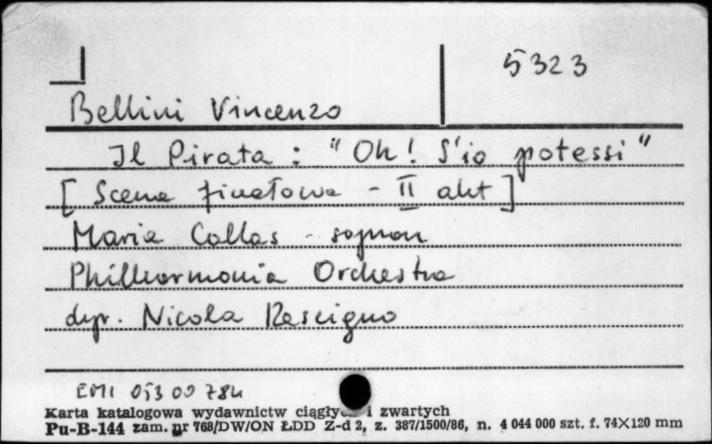 5323
Bellini Vincenzo
Il Pirata : "Oh! S'io potessi"
[Scena finałowa - II akt]
Maria Callas - sopran
Philharmonia Orchestra
dyr. Nicola Rescigno
EMI 053 00 784
Karta katalogowa wydawnictw i zwartych
Pu-B-144 zam. nr 768/DW/ON ŁDD Z-d 2, z. 387/1500/86, n. 4 044 000 szt. f. 74×120 mm